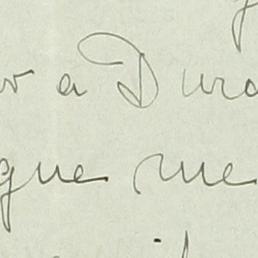 a Dura
que me